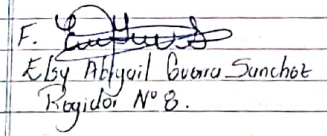 F.
Elsy Abigail Guerra Sanchez
Regidor Nº 8.